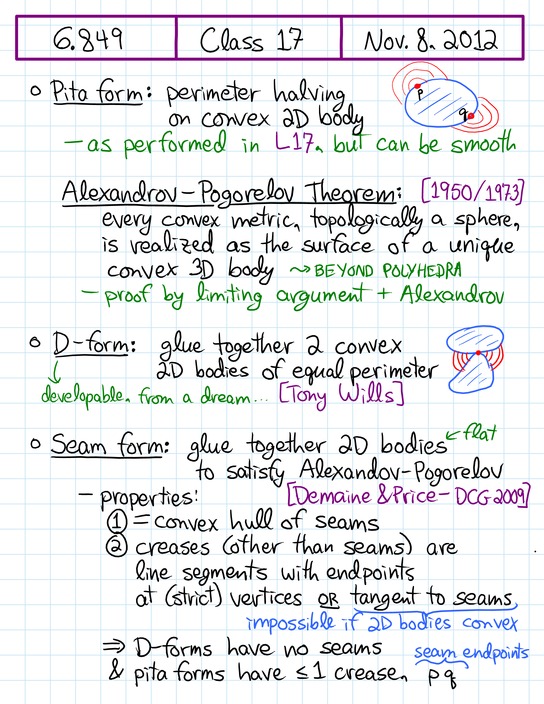 6.849 Class 17 Nov. 8, 2012
o Pita form: perimeter halving
on convex 2D body
p
q
- as performed in L17, but can be smooth
Alexandrov-Pogorelov Theorem: [1950/1973]
every convex metric, topologically a sphere,
is realized as the surface of a unique
convex 3D body ⤳ BEYOND POLYHEDRA
- proof by limiting argument + Alexandrov
o D-form: glue together 2 convex
2D bodies of equal perimeter
↓
developable, from a dream... [Tony Wills]
o Seam form: glue together 2D bodies ← flat
to satisfy Alexandov-Pogorelov
- properties: [Demaine & Price - DCG 2009]
① = convex hull of seams
② creases (other than seams) are
line segments with endpoints
at (strict) vertices OR tangent to seams
impossible if 2D bodies convex
⇒ D-forms have no seams seam endpoints
& pita forms have ≤ 1 crease, pq